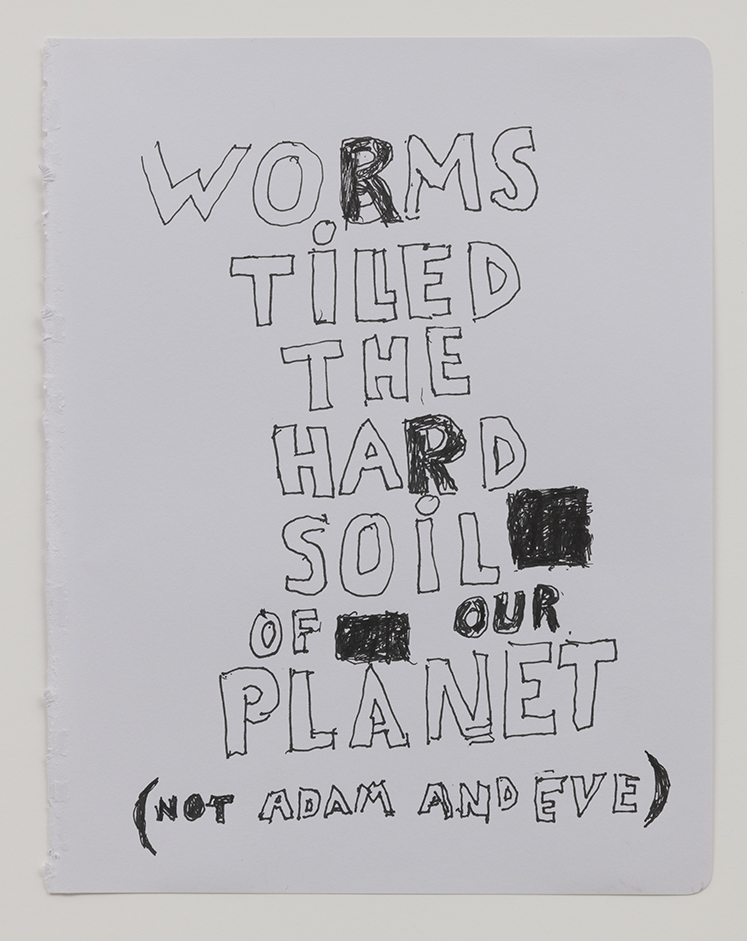 WORMS
TiLED
THE
HARD
SOiL
OF OUR
PLANET
(NOT ADAM AND EVE)